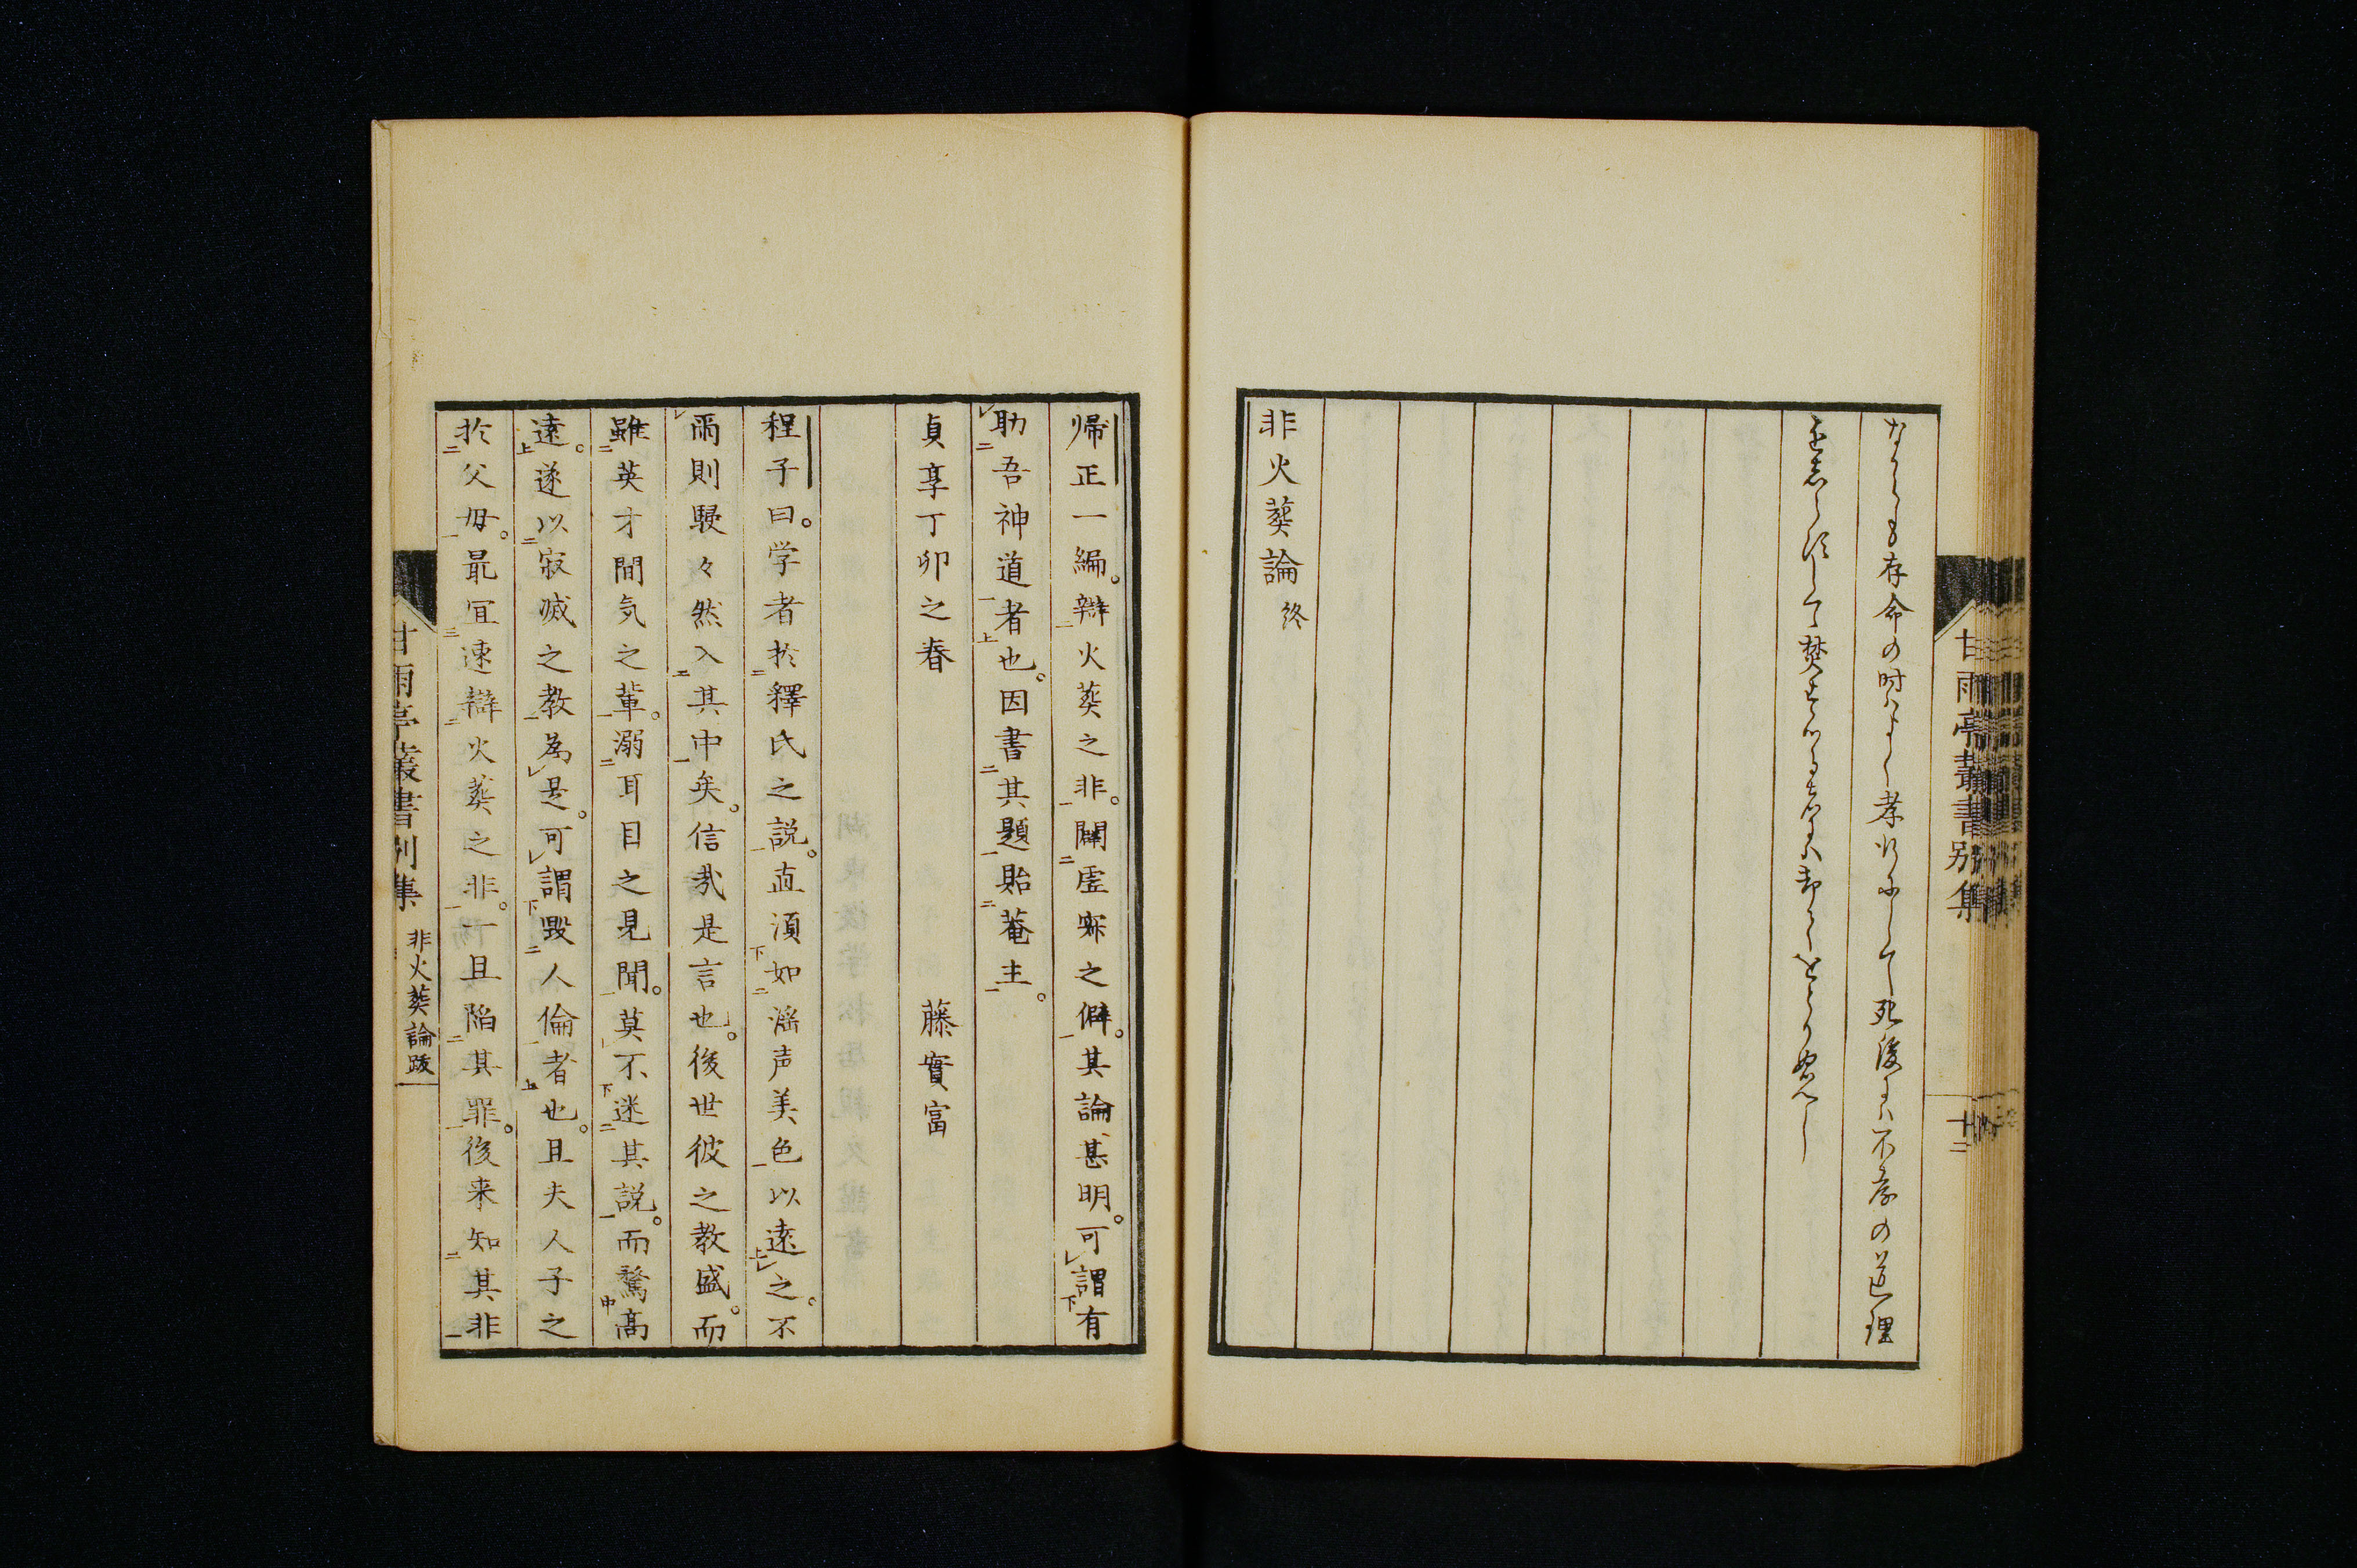 なくしも存命の時はよく孝行にして死後には不孝の道理
をあらはして焚すつる者は却てをとりぬべし
非火葬論終
甘雨亭叢書別集
十二
帰正一編。辯火葬之非。闢虚寂之僻。其論甚明。可謂有
助吾神道者也。因書其題貽菴主。
貞享丁卯之春
藤實富
程子曰。学者於釋氏之説。直須如淫声美色以遠之。不
爾則駸々然入其中矣。信哉是言也。後世彼之教盛。而
雖英才間気之輩。溺耳目之見聞。莫不迷其説。而騖高
遠。遂以寂滅之教為是。可謂毀人倫者也。且夫人子之
於父母。最宜速辯火葬之非。一旦陥其罪。後来知其非
甘雨亭叢書別集
非火葬論跋